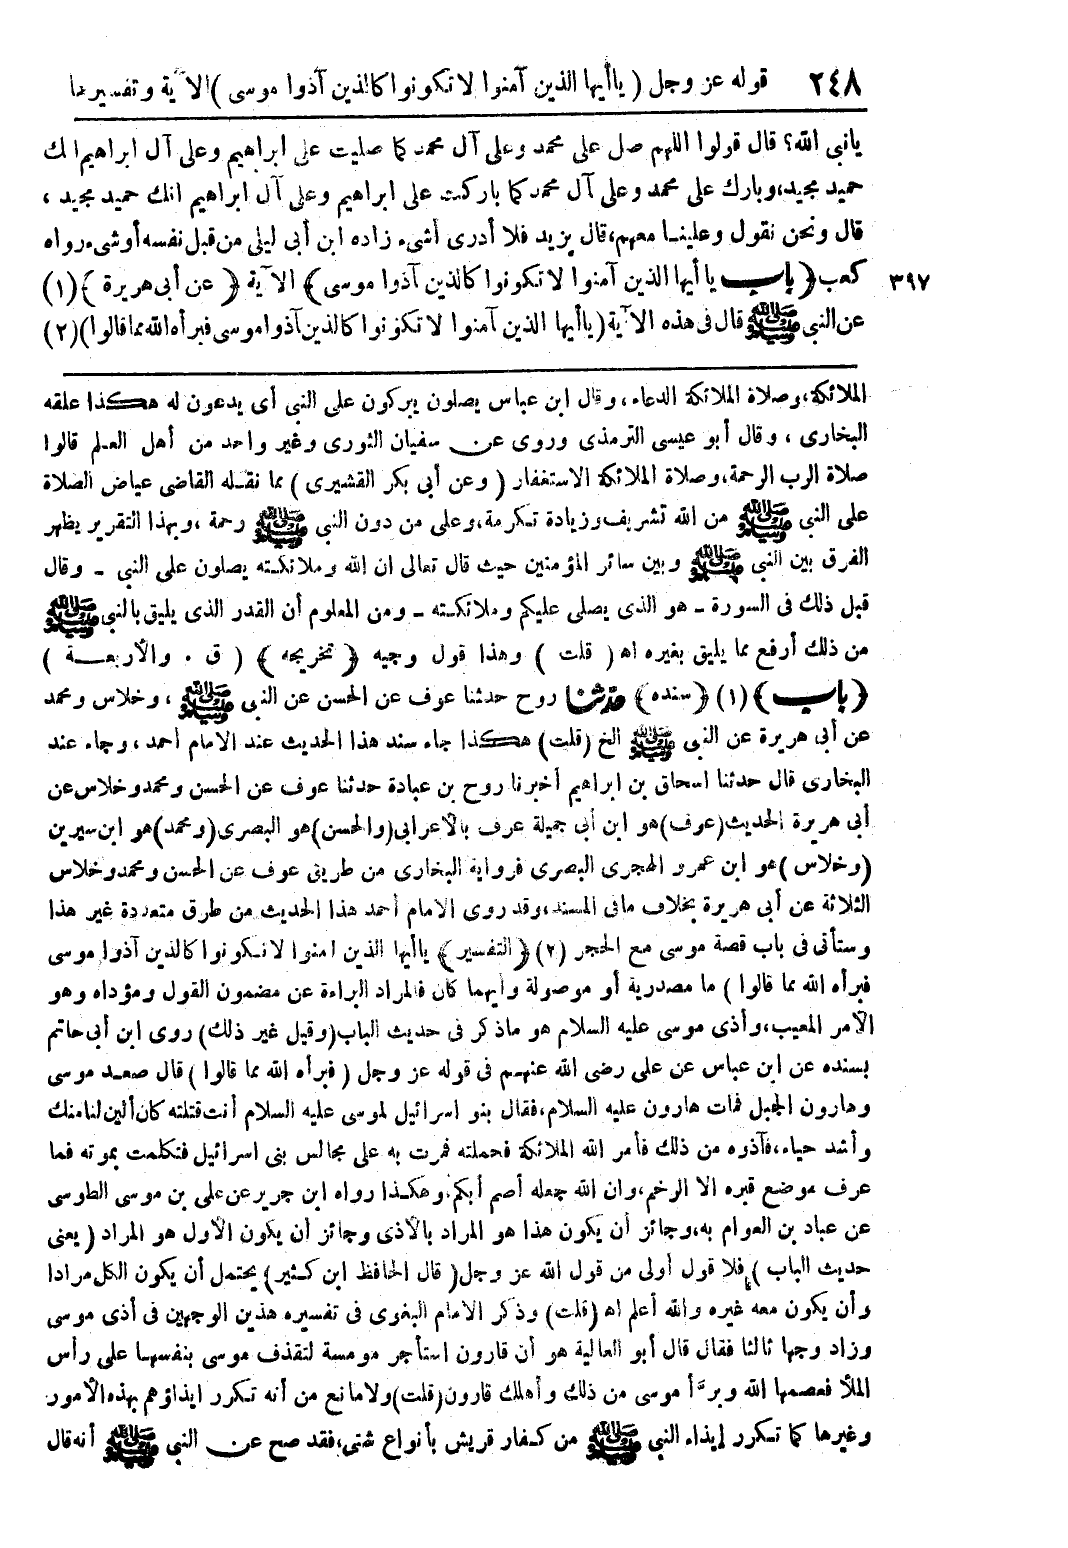 ٢٤٨ قوله عز وجل ( ياأيها الذين آمنوا لا تكونوا كالذين آذوا موسى ) الآية وتفسيرها
يانبى الله؟ قال قولوا اللهم صل على محمد وعلى آل محمد كما صليت على ابراهيم وعلى آل ابراهيم انك
حميد مجيد، وبارك على محمد وعلى آل محمد كما باركت على ابراهيم وعلى آل ابراهيم انك حميد مجيد ،
قال ونحن نقول وعلينا معهم، قال يزيد فلا أدرى أشىء زاده ابن أبى ليلى من قبل نفسه أو شىء رواه
٣٩٧ كعب ﴿ باب يا أيها الذين آمنوا لا تكونوا كالذين آذوا موسى ﴾ الآية ﴿ عن أبى هريرة ﴾ (١)
عن النبى ﷺ قال فى هذه الآية (ياأيها الذين آمنوا لا تكونوا كالذين آذوا موسى فبرأه الله مما قالوا) (٢)
الملائكة، وصلاة الملائكة الدعاء، وقال ابن عباس يصلون يبركون على النبى أى يدعون له هكذا علقه
البخارى ، وقال أبو عيسى الترمذى وروى عن سفيان الثورى وغير واحد من أهل العلم قالوا
صلاة الرب الرحمة، وصلاة الملائكة الاستغفار ( وعن أبى بكر القشيرى ) مما نقله القاضى عياض الصلاة
على النبى ﷺ من الله تشريف وزيادة تكرمة، وعلى من دون النبى ﷺ رحمة ، وبهذا التقرير يظهر
الفرق بين النبى ﷺ وبين سائر المؤمنين حيث قال تعالى ان الله وملائكته يصلون على النبى ـ وقال
قبل ذلك فى السورة ـ هو الذى يصلى عليكم وملائكته ـ ومن المعلوم أن القدر الذى يليق بالنبى ﷺ
من ذلك أرفع مما يليق بغيره اه ( قلت ) وهذا قول وجيه ﴿ تخريجه ﴾ ( ق . والأربعة )
﴿ باب ﴾ (١) ﴿ سنده ﴾ حدثنا روح حدثنا عوف عن الحسن عن النبى ﷺ ، وخلاس ومحمد
عن أبى هريرة عن النبى ﷺ الخ (قلت) هكذا جاء سند هذا الحديث عند الامام أحمد ، وجاء عند
البخارى قال حدثنا اسحاق بن ابراهيم أخبرنا روح بن عبادة حدثنا عوف عن الحسن ومحمد وخلاس عن
أبى هريرة الحديث (عوف) هو ابن أبى جميلة عرف بالأعرابى (والحسن) هو البصرى (ومحمد) هو ابن سيرين
(وخلاس ) هو ابن عمرو الهجرى البصرى فرواية البخارى من طريق عوف عن الحسن ومحمد وخلاس
الثلاثة عن أبى هريرة بخلاف مافى المسند، وقد روى الامام أحمد هذا الحديث من طرق متعددة غير هذا
وستأتى فى باب قصة موسى مع الحجر (٢) ﴿ التفسير ﴾ ياأيها الذين امنوا لا تكونوا كالذين آذوا موسى
فبرأه الله مما قالوا ) ما مصدرية أو موصولة وأيهما كان فالمراد البراءة عن مضمون القول ومؤداه وهو
الأمر المعيب، وأذى موسى عليه السلام هو ماذكر فى حديث الباب (وقيل غير ذلك) روى ابن أبى حاتم
بسنده عن ابن عباس عن على رضى الله عنهم فى قوله عز وجل ( فبرأه الله مما قالوا ) قال صعد موسى
وهارون الجبل فمات هارون عليه السلام، فقال بنو اسرائيل لموسى عليه السلام أنت قتلته كان ألين لنا منك
وأشد حياء، فآذوه من ذلك فأمر الله الملائكة فحملته فمرت به على مجالس بنى اسرائيل فتكلمت بموته فما
عرف موضع قبره الا الرخم، وان الله جعله أصم أبكم، وهكذا رواه ابن جرير عن على بن موسى الطوسى
عن عباد بن العوام به، وجائز أن يكون هذا هو المراد بالأذى وجائز أن يكون الأول هو المراد ( يعنى
حديث الباب ) فلا قول أولى من قول الله عز وجل ( قال الحافظ ابن كثير) يحتمل أن يكون الكل مرادا
وأن يكون معه غيره والله أعلم اه (قلت) وذكر الامام البغوى فى تفسيره هذين الوجهين فى أذى موسى
وزاد وجها ثالثا فقال قال أبو العالية هو أن قارون استأجر مومسة لتقذف موسى بنفسها على رأس
الملأ فعصمها الله وبرأ موسى من ذلك وأهلك قارون (قلت) ولا مانع من أنه تكرر ايذاؤهم بهذه الأمور
وغيرها كما تكرر إيذاء النبى ﷺ من كفار قريش بأنواع شتى، فقد صح عن النبى ﷺ أنه قال